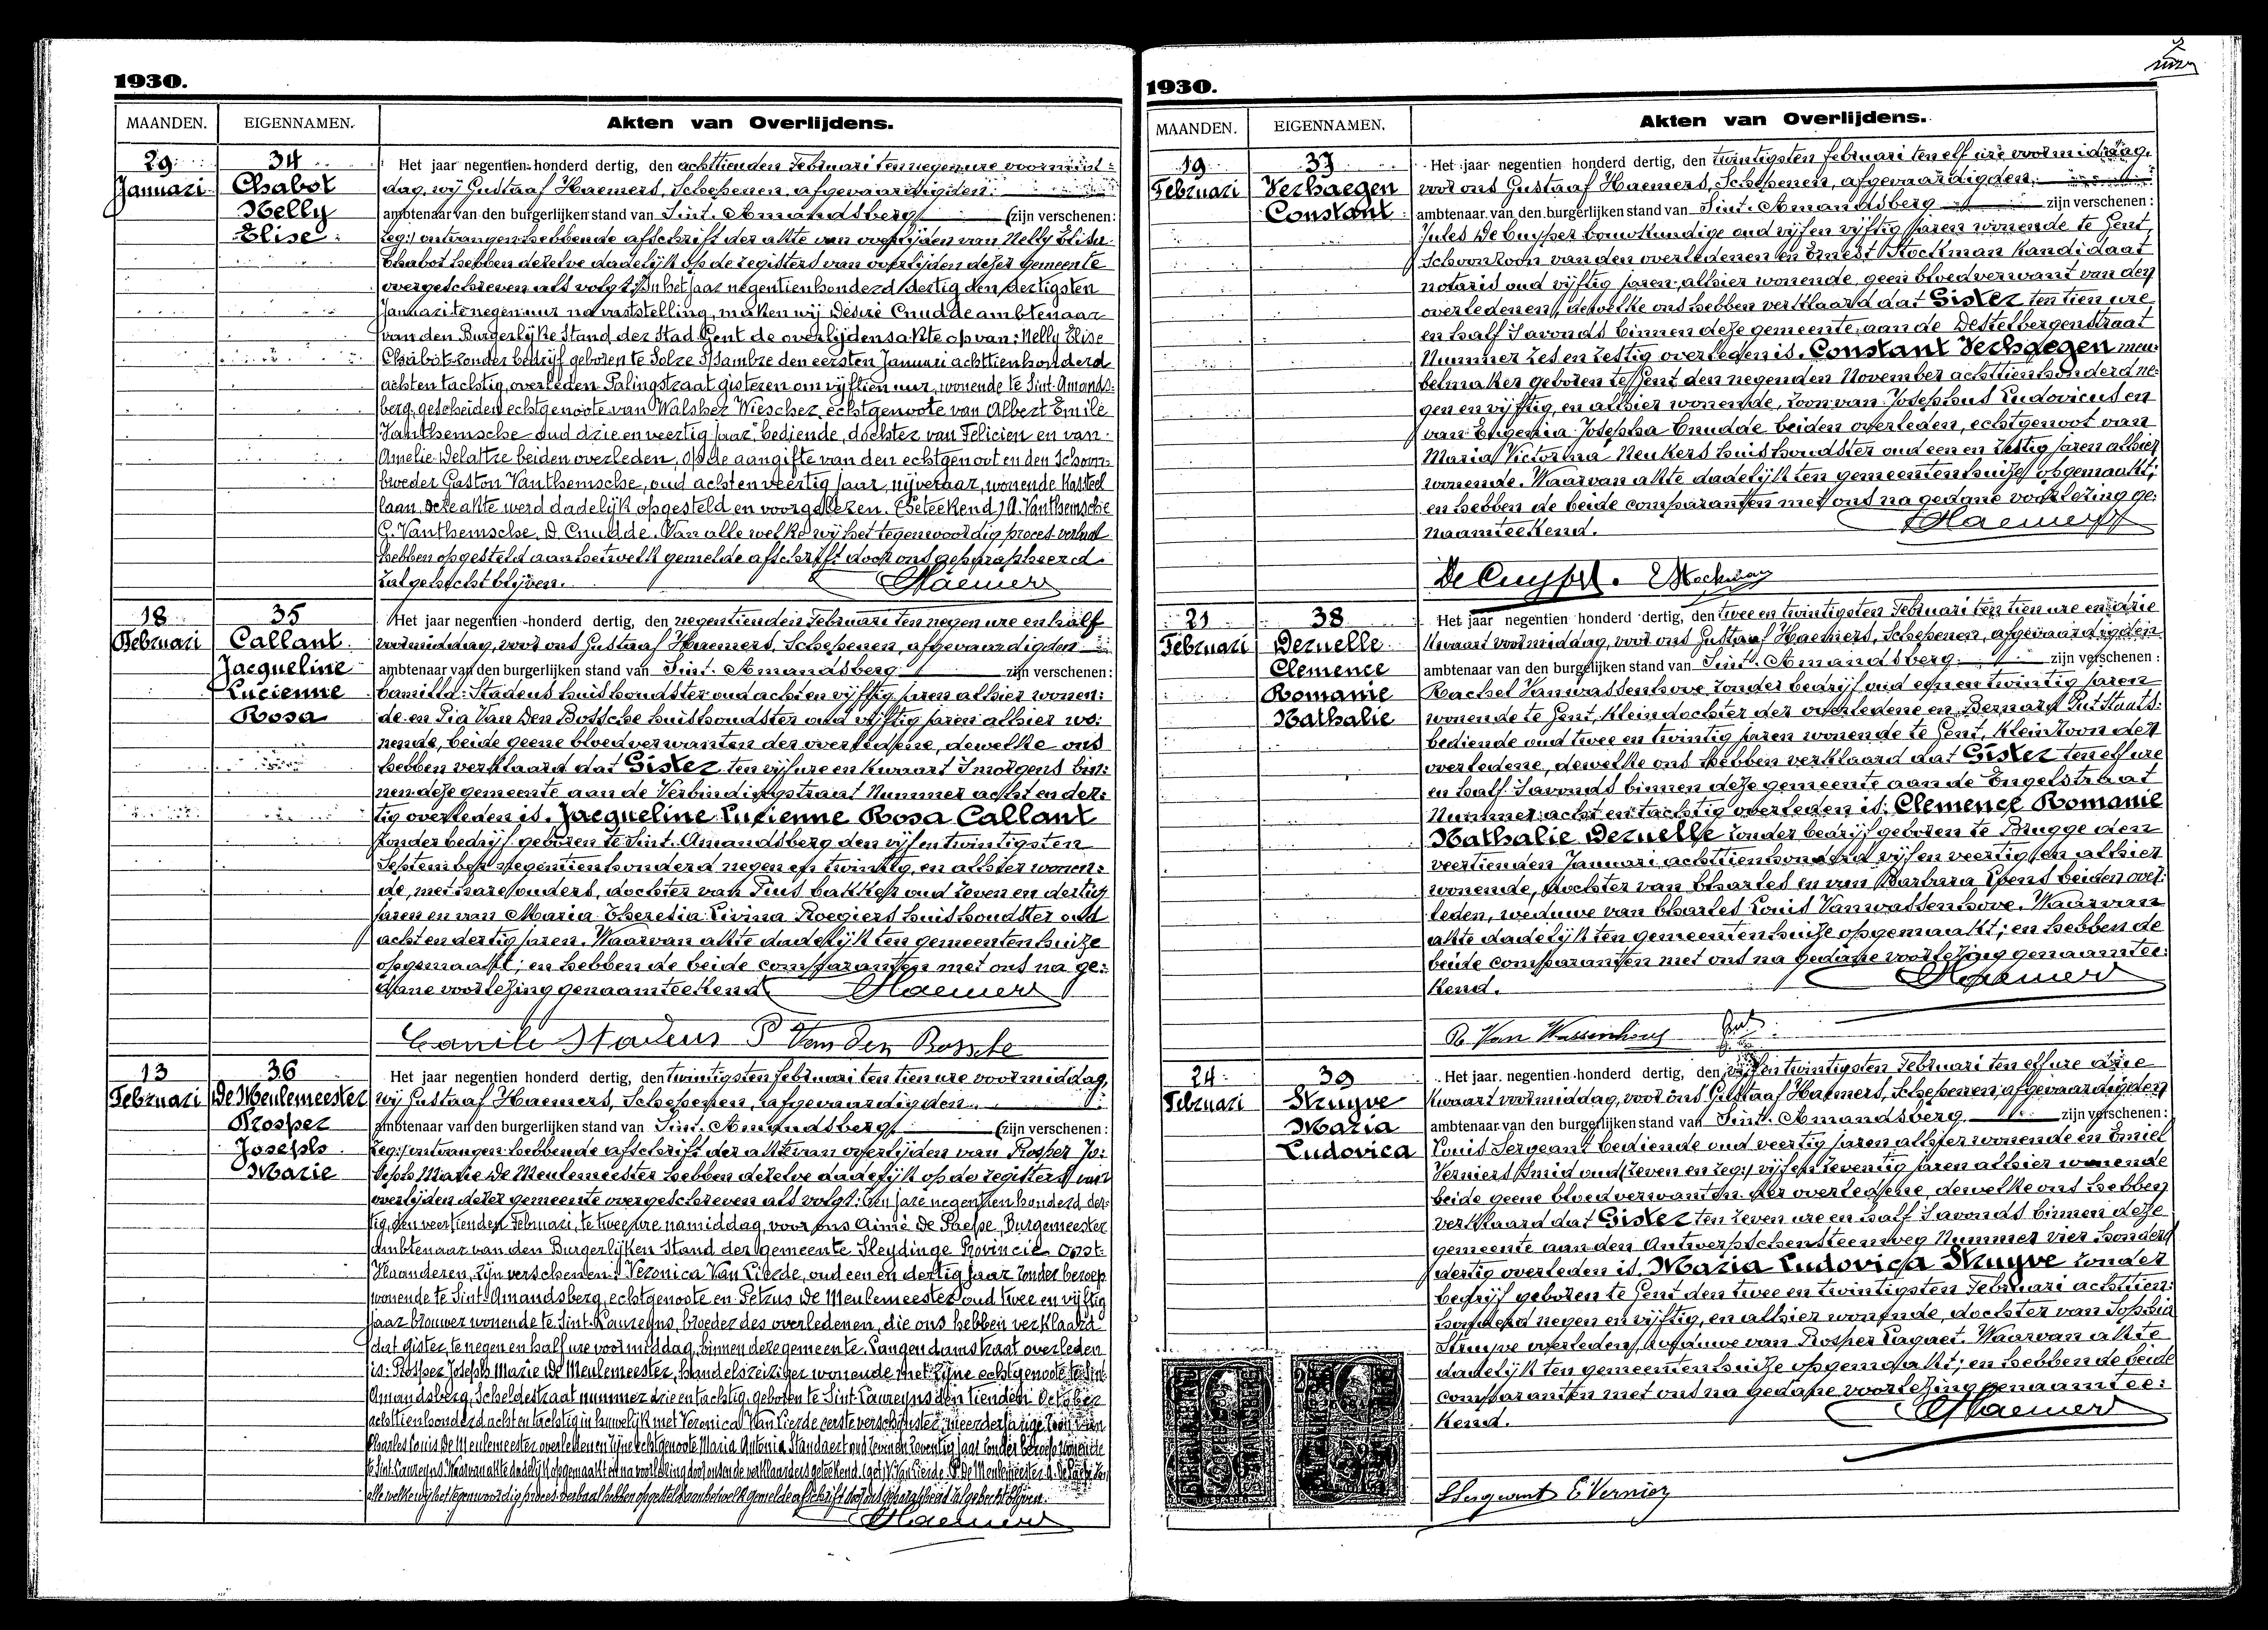 1930.
MAANDEN. EIGENNAMEN. Akten van Overlijdens.
29 Januari
34
Chabot
Nelly
Elise
Het jaar negentien-honderd dertig, den achttienden Februari ten negen ure voormid-
dag, wij Gustaaf Haemers, Schepenen, afgevaardigden
ambtenaar van den burgerlijken stand van Sint. Amandsberg (zijn verschenen:
leg:) ontvangen hebbende afschrift der akte van overlijden van Nelly Elise
Chabot hebben dezelve dadelijk op de registers van overlijden dezer gemeente
overgeschreven als volgt: In het jaar negentienhonderd dertig den dertigsten
Januari te negen uur na vaststelling, maken wij Désiré Cnudde ambtenaar
van den Burgerlijke Stand der Stad Gent de overlijdensakte op van: Nelly Elise
Chabot zonder bedrijf geboren te Solre S/Sambre den eersten Januari achttienhonderd
achten tachtig, overleden Palingstraat gisteren om vijftien uur, wonende te Sint-Amands-
berg, gescheiden echtgenoote van Walsher Wiescher, echtgenoote van Albert Emile
Vanthemsche oud drie en veertig jaar, bediende, dochter van Felicien en van
Amelie Delattre beiden overleden, op de aangifte van den echtgenoot en den schoon-
broeder Gaston Vanthemsche, oud achten veertig jaar, nijveraar, wonende Kasteel
laan, deze akte werd dadelijk opgesteld en voorgelezen. (Geteekend) A. Vanthemsche
G. Vanthemsche, D. Cnudde. Van alle welke wij het tegenwoordig proces-verbaal
hebben opgesteld aan hetwelk gemelde afschrift door ons geparapheerd
zal gehecht blijven.
Haemers
18 Februari
35
Callant
Jacqueline
Lucienne
Rosa
Het jaar negentien-honderd dertig, den negentienden Februari ten negen ure en half
voormiddag, voor ons Gustaaf Haemers, Schepenen, afgevaardigden
ambtenaar van den burgerlijken stand van Sint. Amandsberg zijn verschenen:
Camilla Stadeus huishoudster oud acht en vijftig jaren alhier wonen-
de en Pia Van Den Bossche huishoudster oud vijftig jaren alhier wo-
nende, beide geene bloedverwanten der overledene, dewelke ons
hebben verklaard dat Gister ten vijf ure en kwaart s'morgens bin-
nen deze gemeente aan de Verbindingstraat Nummer acht en der-
tig overleden is. Jacqueline Lucienne Rosa Callant
zonder bedrijf geboren te Sint. Amandsberg den vijf en twintigsten
September negentienhonderd negen en twintig, en alhier wonen-
de, met hare ouders, dochter van Pius bakker oud zeven en dertig
jaren en van Maria Theresia Livina Roegiers huishoudster oud
acht en dertig jaren. Waarvan akte dadelijk ten gemeentenhuize
opgemaakt; en hebben de beide comparanten met ons na ge-
dane voorlezing genaamteekend.
Haemers
Camile Stadeus P Van den Bossche
13 Februari
36
De Meulemeester
Prosper
Joseph
Marie
Het jaar negentien honderd dertig, den twintigsten februari ten tien ure voormiddag,
wij Gustaaf Haemers, Schepenen, afgevaardigden
ambtenaar van den burgerlijken stand van Sint. Amandsberg (zijn verschenen:
leg:) ontvangen hebbende afschrift der akte van overlijden van Prosper Jo-
seph Marie De Meulemeester hebben dezelve dadelijk op de registers van
overlijden dezer gemeente overgeschreven als volgt: Ten jare negentien honderd der-
tig, den veertienden Februari, te twee ure namiddag, voor ons Aimé De Paepe, Burgemeester
Ambtenaar van den Burgerlijken Stand der gemeente Sleydinge Provincie Oost-
Vlaanderen, zijn verschenen: Veronica Van Lierde, oud een en dertig jaar zonder beroep
wonende te Sint-Amandsberg, echtgenoote en Petrus De Meulemeester oud twee en vijftig
jaar brouwer wonende te Sint-Laureyns, broeder des overledenen, die ons hebben verklaard
dat gister, te negen en half ure voormiddag, binnen deze gemeente, Langendamstraat overleden
is: Prosper Joseph Marie De Meulemeester, handelsreiziger wonende met zijne echtgenoote te Sint
Amandsberg, Scheldestraat nummer drie en tachtig, geboren te Sint Laureyns den tienden October
achttienhonderd acht en tachtig in huwelijk met Veronica Van Lierde eerste verschijnster, meerderjarige zoon van
Charles Louis De Meulemeester overleden en zijne echtgenoote Maria Antonia Standaert oud zeven en zeventig jaar zonder beroep wonende
te Sint Laureyns. Waarvan akte dadelijk opgemaakt en na voorlezing door ons en de verklaarders geteekend. (get) V. Van Lierde. P. De Meulemeester. A. De Paepe. Van
alle welke wij het tegenwoordig proces-verbaal hebben opgesteld aan hetwelk gemelde afschrift door ons geparapheerd zal gehecht blijven.
Haemers
1930.
MAANDEN. EIGENNAMEN. Akten van Overlijdens.
19 Februari
37
Verhaegen
Constant
Het jaar negentien honderd dertig, den twintigsten februari ten elf ure voormiddag,
voor ons Gustaaf Haemers, Schepenen, afgevaardigden
ambtenaar van den burgerlijken stand van Sint. Amandsberg zijn verschenen:
Jules De Cuyper bouwkundige oud vijf en vijftig jaren wonende te Gent,
Schoonzoon van den overledenen en Ernest Stockman kandidaat
notaris oud vijftig jaren, alhier wonende, geen bloedverwant van den
overledenen, dewelke ons hebben verklaard dat Gister ten tien ure
en half s'avonds binnen deze gemeente, aan de Destelbergenstraat
Nummer zes en zestig overleden is. Constant Verhaegen meu-
belmaker geboren te Gent, den negenden November achttienhonderd ne-
gen en vijftig, en alhier wonende, zoon van Josephus Ludovicus en
van Eugenia Josepha Cnudde beiden overleden, echtgenoot van
Maria Victorina Neukers huishoudster oud een en zestig jaren alhier
wonende. Waarvan akte dadelijk ten gemeentenhuize opgemaakt;
en hebben de beide comparanten met ons na gedane voorlezing ge-
naamteekend.
Haemers
De Cuyper. E Stockman
21 Februari
38
Dezuelle
Clemence
Romanie
Nathalie
Het jaar negentien honderd dertig, den twee en twintigsten Februari ten tien ure en drie
kwaart voormiddag, voor ons Gustaaf Haemers, Schepenen, afgevaardigden
ambtenaar van den burgerlijken stand van Sint. Amandsberg zijn verschenen:
Rachel Vanwassenhove zonder bedrijf oud een en twintig jaren
wonende te Gent, kleindochter der overledene en Bernard Put Staats-
bediende oud twee en twintig jaren wonende te Gent, kleinzoon der
overledene, dewelke ons hebben verklaard dat Gister ten elf ure
en half s'avonds binnen deze gemeente aan de Engelstraat
Nummer acht en tachtig overleden is. Clemence Romanie
Nathalie Dezuelle zonder bedrijf geboren te Brugge den
veertienden Januari achttienhonderd vijf en veertig, en alhier
wonende, dochter van Charles en van Barbara Ipens beiden over-
leden, weduwe van Charles Louis Vanwassenhove. Waarvan
akte dadelijk ten gemeentenhuize opgemaakt; en hebben de
beide comparanten met ons na gedane voorlezing genaamtee-
kend.
Haemers
R. Van Wassenhove Put
24 Februari
39
Struyve
Maria
Ludovica
Het jaar negentien-honderd dertig, den vijf en twintigsten Februari ten elf ure drie
kwaart voormiddag, voor ons Gustaaf Haemers, Schepenen, afgevaardigden
ambtenaar van den burgerlijken stand van Sint. Amandsberg zijn verschenen:
Louis Sergeant bediende oud veertig jaren alhier wonende en Emiel
Verniers smid oud (zeven en leg:) vijf en zeventig jaren alhier wonende
beide geene bloedverwanten der overledene, dewelke ons hebben
verklaard dat Gister ten zeven ure en half s'avonds binnen deze
gemeente aan den Antwerpschensteenweg Nummer vier honderd
dertig overleden is. Maria Ludovica Struyve zonder
bedrijf geboren te Gent den twee en twintigsten Februari achttien-
honderd negen en vijftig, en alhier wonende, dochter van Sophia
Struyve overleden, weduwe van Prosper Paquet. Waarvan akte
dadelijk ten gemeentenhuize opgemaakt; en hebben de beide
comparanten met ons na gedane voorlezing genaamtee-
kend.
Haemers
LSergeant E Vernier